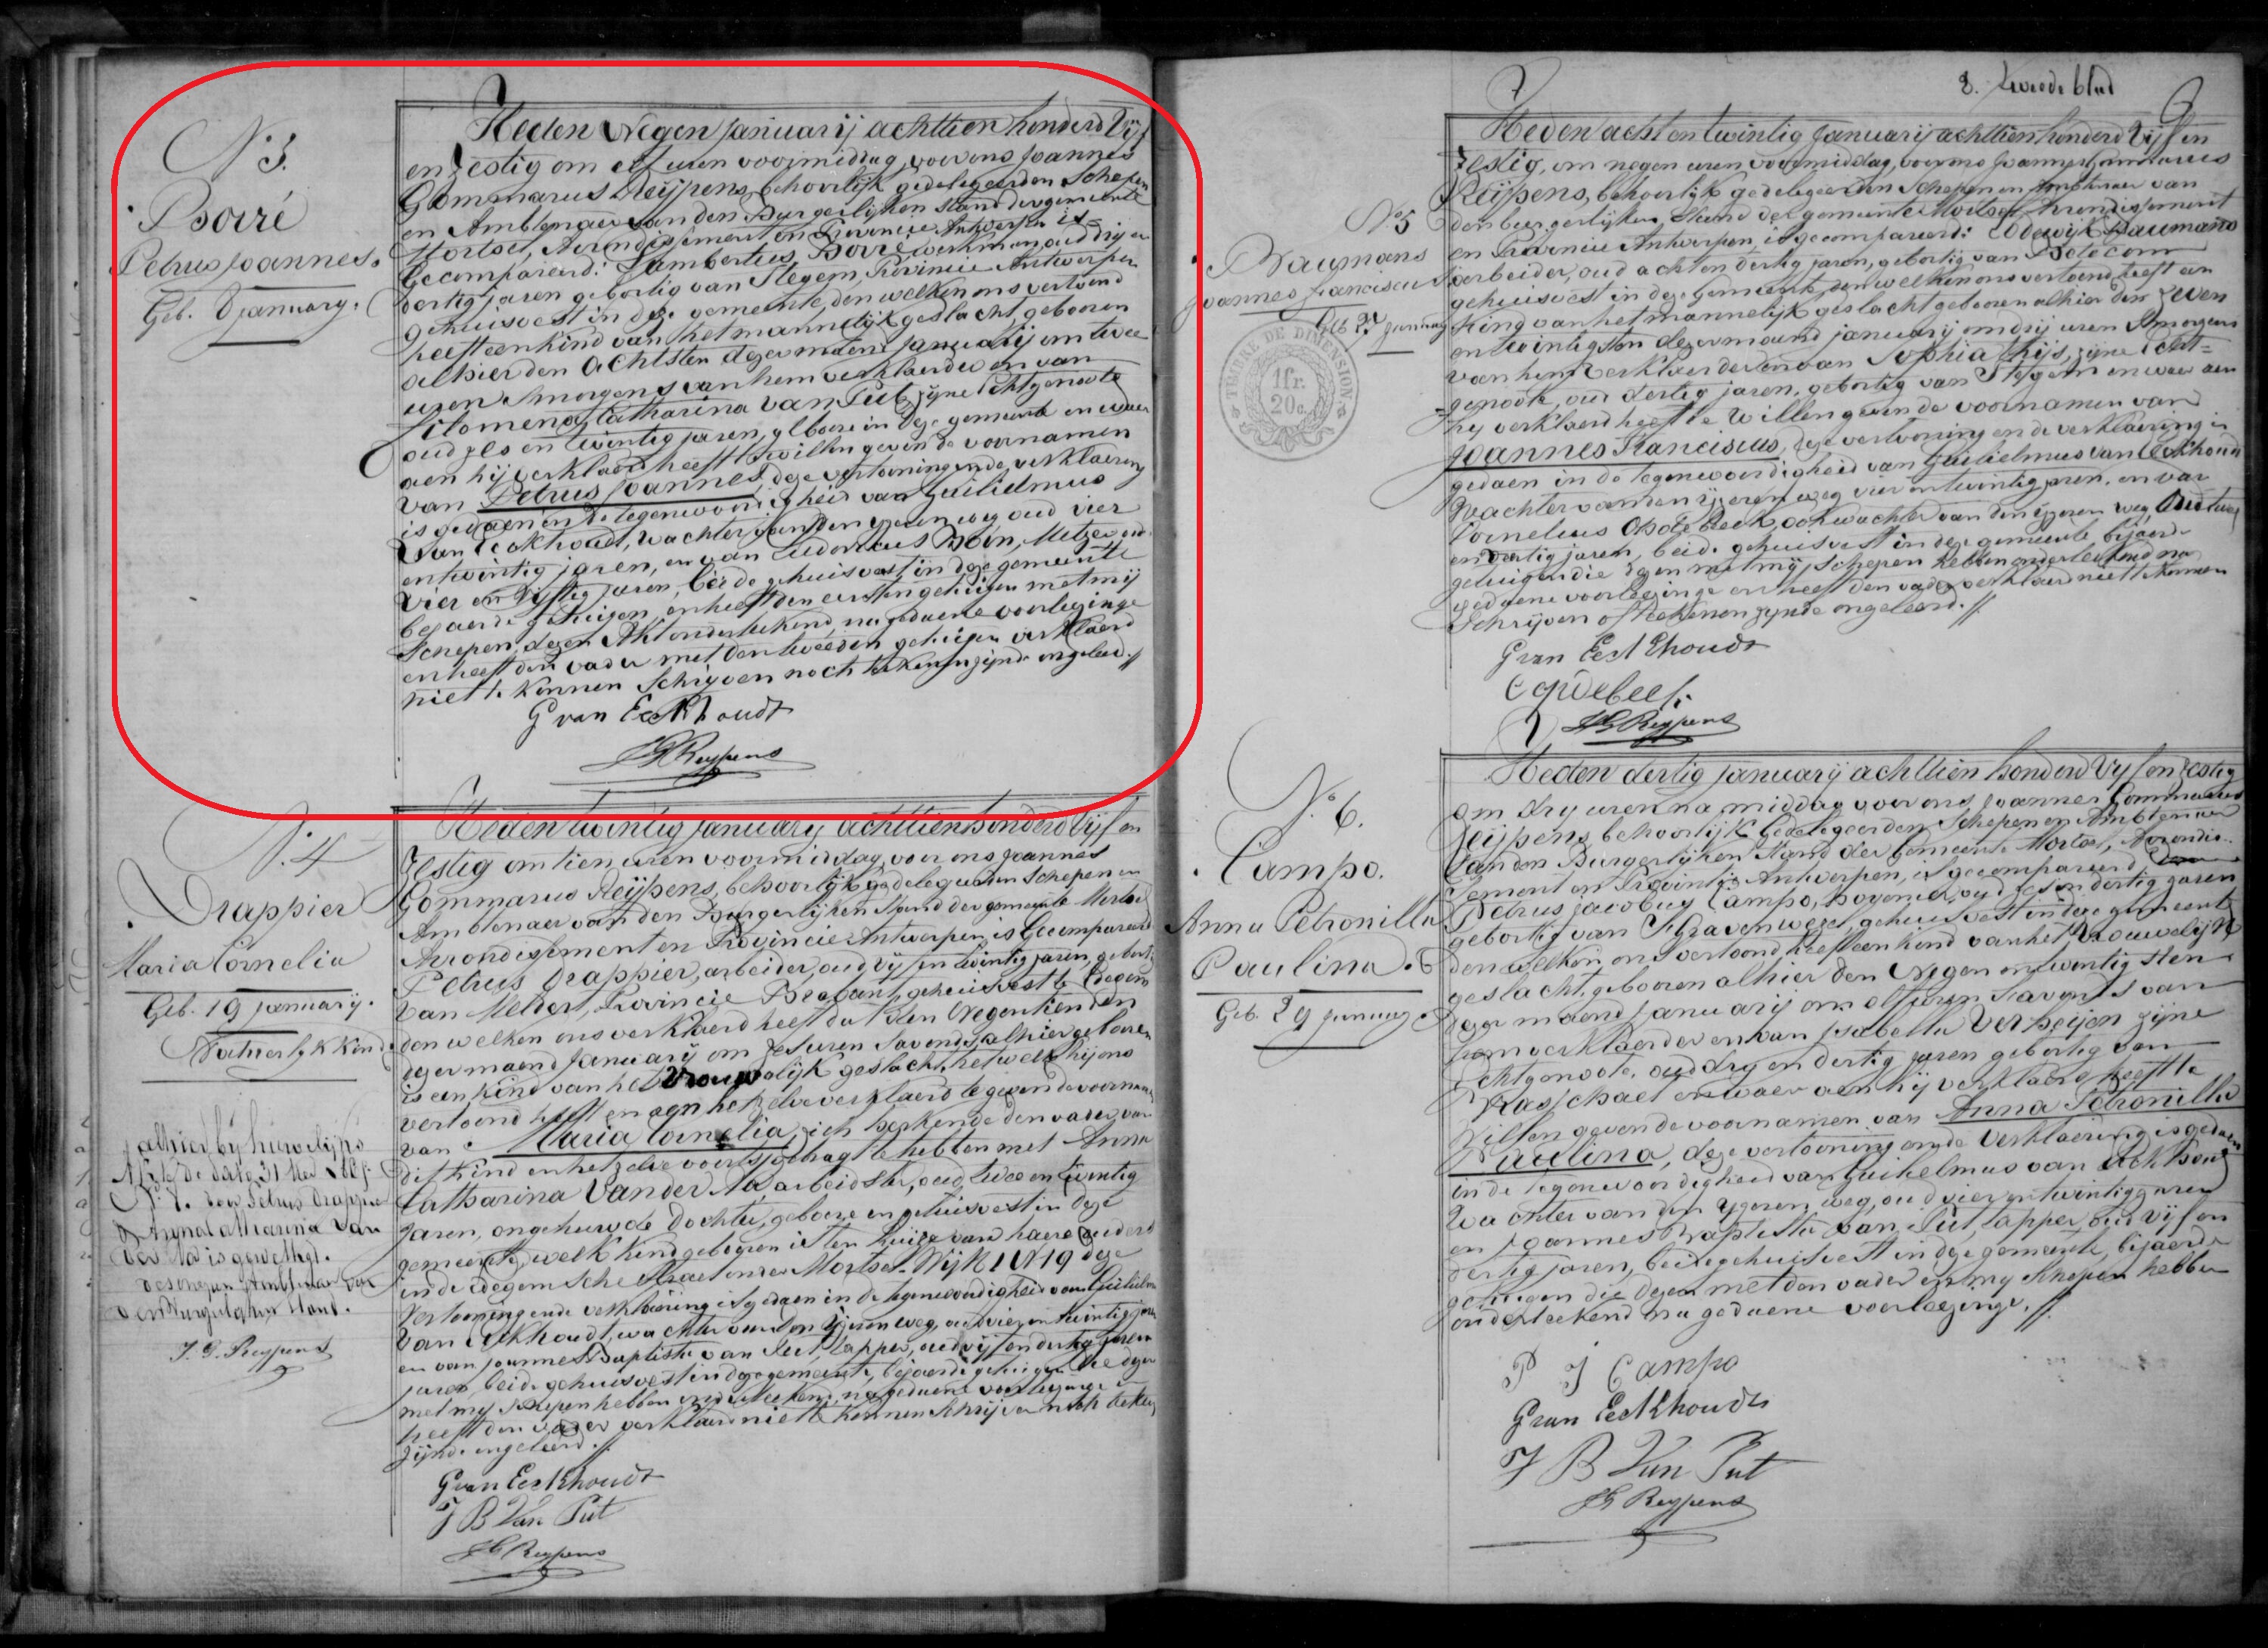 N° 3.
Borré
Petrus Joannes.
Geb. 8 january.
Heden Negen Januarij achttien honderd Vijf
en Zestig om elf uren voormiddag, voor ons Joannes
Gommarus Reÿpens, behoorlijk gedelegeerden Schepen
en Ambtenaer van den Burgerlijken stand der gemeente
Mortsel, Arrondissement en Provincie Antwerpen is
Gecompareerd: Lambertus Borré werkman oud drij en
veertig jaren gebortig van Itegem, Provincie Antwerpen
gehuisvest in deze gemeente, den welken ons vertoond
heeft een kind van het mannelijk geslacht, geboren
alhier den Achtsten dezer maend Januarij om twee
uren Smorgens van hem verklaerder en van
Filomena Catharina Van Put, zijne Echtgenoote
oud zes en twintig jaren, geboore in deze gemeente en waer
aen hij verklaerd heeft te willen geven de voornamen
van Petrus Joannes, deze vertooning en de verklaering
is gedaen in de tegenwoordigheid van Guilielmus
Van Eeckhoudt, Wachter van den yzeren weg oud vier
en twintig jaren, en van Ludovicus Boen, Metzer oud
Vier en Vyftig jaren, beide gehuisvest in deze gemeente
bejaerde getuigen, en heeft den eersten getuigen met mij
Schepen dezen Akt onderteekend, na gedaene voorlezinge
en heeft den vader met den tweeden getuigen verklaerd
niet te konnen Schryven noch teekenen zijnde ongeleerd. //
G van Eeckhoudt
JG Reypens
N. 4
Drappier
Maria Cornelia
Geb. 19 januarij.
Natuerlyk Kind
alhier by huwelijks
Akte de dato 31 Mei 186
N° 7. door Petrus Drappier
& Anna Catharina Van
der Aa is gewettigt.
den Ambtenaer van
den Burgerlyken Stand.
J. G. Reypens
Heden twintig January achttien honderd Vijf en
Zestig om tien uren voormiddag, voor ons Joannes
Gommarus Reÿpens, behoorlijk gedelegeerden Schepen en
Ambtenaer van den Burgerlijken Stand der gemeente Mortsel
Arrondissement en Provincie Antwerpen, is Gecompareerd
Petrus Drappier, arbeider, oud vijf en twintig jaren, gebortig
van Meldert, Provincie Braband, gehuisvest te Edegem
den welken ons verklaerd heeft dat den Negentienden
dezer maend Januarij om zes uren Savonds alhier geboren
is een kind van het Vrouwelijk geslacht, hetwelk hij ons
vertoond heeft en aen hetzelve verklaerd te geven de voornamen
van Maria Cornelia, zich herkende den vader van
dit kind en hetzelve voortsgebragt te hebben met Anna
Catharina Van der Aa, arbeidster, oud twee en twintig
jaren, ongehuwde dochter, geboore en gehuisvest in deze
gemeente, welk kind geboren is ten huize van haere ouders
in de Edegemsche Straet onder Mortsel Wijk 1 N 19 deze
Vertooning en de verklaering is gedaen in de tegenwoordigheid van Guilielmus
Van Eeckhoudt, wachter van den Yzeren weg, oud vier en twintig jaren
en van Joannes Baptista van Put, tapper, oud vijf en dertig jaren
jaren, beide gehuisvest in deze gemeente, bejaerde getuigen die dezen
met my Schepen hebben onderteekend, na gedaene voorlezinge en
heeft den vader verklaerd niet te konnen Schrijven noch teekenen
zijnde ongeleerd. //
G van Eeckhoudt
J B Van Put
JG Reypens
8. tweede blad
TIMBRE DE DIMENSION
1 fr.
20 c.
N° 5
Baumans
Joannes Franciscus
Geb 27 january
Heden acht en twintig Januarij achttien honderd Vijf en
Zestig, om negen uren voormiddag, voor ons Joannes Gommarus
Reÿpens, behoorlijk gedelegeerden Schepen en Ambtenaer van
den burgerlijken Stand der gemeente Mortsel Arrondissement
en Provincie Antwerpen, is gecompareerd: Lodewijk Baumans
arbeider, oud acht en dertig jaren, gebortig van Betecom
gehuisvest in deze gemeente, den welken ons vertoond heeft een
Kind van het mannelijk geslacht geboren alhier den zeven
en twintigsten dezer maend januarij om drij uren Smorgens
van hem Verklaerder en van Sophia Thijs, zijne Echt-
genoote, oud dertig jaren, gebortig van Itegem en waer aen
hij verklaerd heeft te Willen geven de voornamen van
Joannes Franciscus, deze vertooning en de verklaering is
gedaen in de tegenwoordigheid van Guilielmus van Eeckhoudt
Wachter van den ijzeren weg vier en twintig jaren, en van
Cornelius Opdebeeck, ook wachter van den ijzeren weg, Oud twee
en dertig jaren, beide gehuisvest in deze gemeente bejaerde
getuigen die dezen met mij Schepen hebben onderteekend na
gedaene voorlezinge en heeft den vader verklaerd niet te konnen
Schrijven of teekenen zynde ongeleerd. //
G van Eeckhoudt
C Opdebeek
JG Reypens
N° 6.
Campo.
Anna Petronilla
Paulina.
Geb. 29 january
Heden dertig januarij achttien honderd Vyf en Zestig
om dry uren na middag voor ons Joannes Gommarus
Reijpens behoorlijk Gedelegeerden Schepen en Ambtenaer
van den Burgerlijken Stand der Gemeente Mortsel, Arrondis-
sement en Provintie Antwerpen, is gecompareerd
Petrus Jacobus Campo, Hovenier, oud zes en dertig jaren
gebortig van S'Gravenwezel, gehuisvest in deze gemeente
den welken ons vertoond heeft een kind van het Vrouwelijk
geslacht, geboren alhier den Negen en twintigsten
dezer maend Januarij om elf uren Savonds van
hem verklaerder en van Isabella Verheijen zijne
Echtgenoote, oud dry en dertig jaren gebortig van
Brasschaet en waer aen hij verklaerd heeft te
Willen geven de voornamen van Anna Petronilla
Paulina, deze vertooning en de Verklaering is gedaen
in de Tegenwoordigheid van Guilielmus van Eeckhoudt
Wachter van den Yzeren weg, oud vier en twintig jaren
en Joannes Baptista van Put, tapper, oud vijf en
dertig jaren, beide gehuisvest in deze gemeente, bejaerde
getuigen die dezen met den vader en my Schepen hebben
onderteekend na gedaene voorlezinge. //
P J Campo
G van Eeckhoudt
J B Van Put
JG Reypens